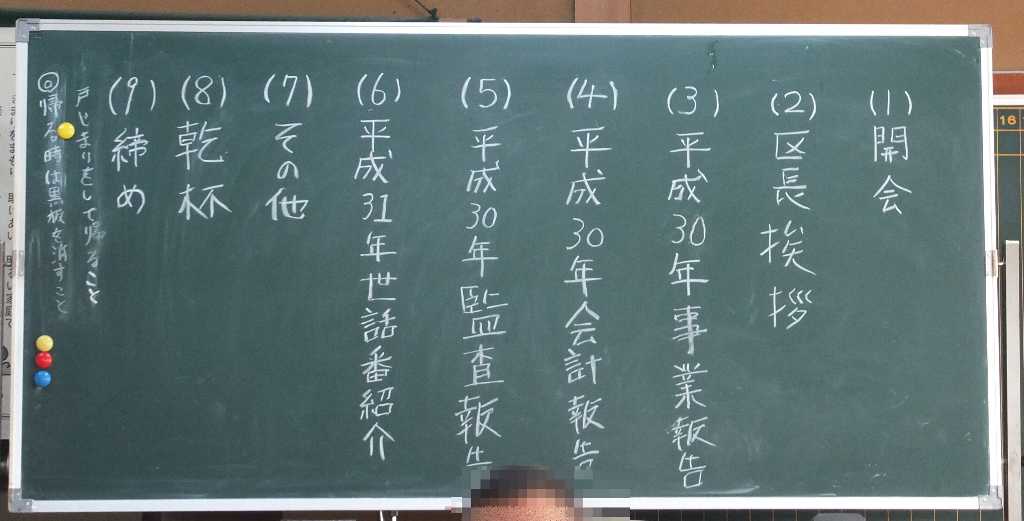 (1) 開会
(2) 区長挨拶
(3) 平成30年事業報告
(4) 平成30年会計報告
(5) 平成30年監査報告
(6) 平成31年世話番紹介
(7) その他
(8) 乾杯
(9) 締め
戸じまりをして帰ること
◎帰る時は黒板を消すこと
16